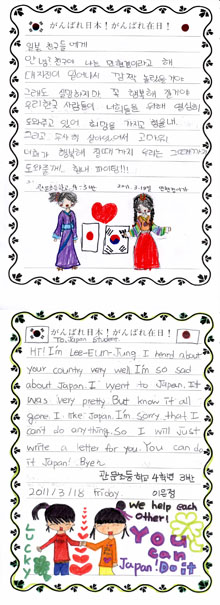 がんばれ日本！がんばれ在日！
일본 친구들에게
안녕? 친구야 나는 민현경이라고 해
대지진이 일어나서 깜짝 놀랐을거야
그래도 실망하지마 꼭 행복해 질거야
우리한국 사람들이 너희들을 위해 열심히
도와주고 있어 희망을 가지고 힘을내.
그리고 무사히 살아있어서 고마워
너희가 행복해 질때까지 우리는 그때까지
도와줄께. 힘내 화이팅!!!
2011. 3. 18일 민현경이가
がんばれ日本！がんばれ在日！
To. Japan Student.
Hi! I'm Lee-Eun-Jung I heard about
your country very well. I'm so sad
about Japan. I went to Japan. It
was very pretty. But know it all
gone. I like Japan. I'm sorry that I
can't do anything. So I will just
write a letter for you. You can do
it Japan! Bye~
관문초등학교 4학년 2반
2011/3/18 Friday. 이은정
We help each
other!
LUCKY
You
can
Do it
Japan!